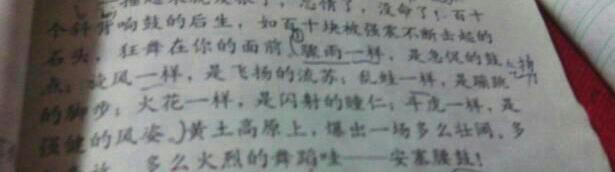 起来就发狠了,忘情了,没命了!百十
个斜背响鼓的后生,如百十块被强震不断击起的
石头,狂舞在你的面前。①骤雨一样,是急促的鼓
点;旋风一样,是飞扬的流苏;乱蛙一样,是蹦跳
的脚步;火花一样,是闪射的瞳仁;斗虎一样,是
强健的风姿。黄土高原上,爆出一场多么壮阔、多
多么火烈的舞蹈哇——安塞腰鼓!